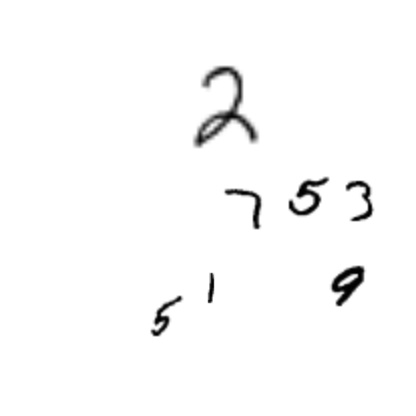 2
7 5 3
5 1 9